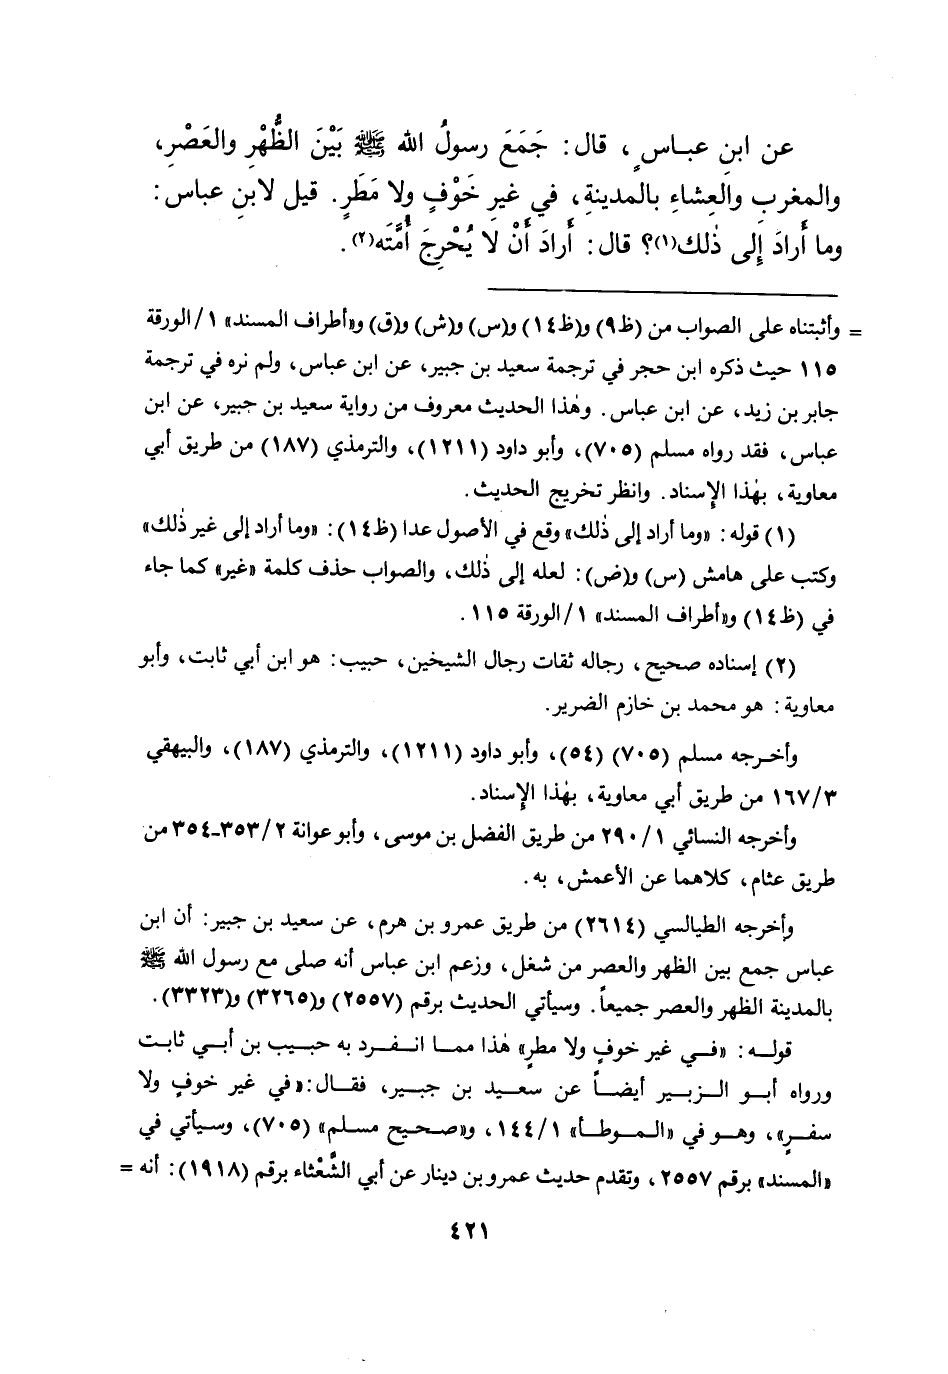 عن ابنِ عبـاسٍ، قال: جَمَعَ رسولُ الله ﷺ بَيْنَ الظُّهْرِ والعَصْرِ،
والمغربِ والعِشاءِ بالمدينةِ، في غيرِ خَوْفٍ ولا مَطَرٍ. قيل لابنِ عباس:
وما أَرادَ إِلى ذٰلك(١)؟ قال: أَرادَ أَنْ لَا يُحْرِجَ أُمَّتَه(٢).
= وأثبتناه على الصواب من (ظ٩) و(ظ١٤) و(س) و(ش) و(ق) و«أطراف المسند» ١/الورقة
١١٥ حيث ذكره ابن حجر في ترجمة سعيد بن جبير، عن ابن عباس، ولم نره في ترجمة
جابر بن زيد، عن ابن عباس. وهٰذا الحديث معروف من رواية سعيد بن جبير، عن ابن
عباس، فقد رواه مسلم (٧٠٥)، وأبو داود (١٢١١)، والترمذي (١٨٧) من طريق أبي
معاوية، بهٰذا الإسناد. وانظر تخريج الحديث.
(١) قوله: «وما أراد إلى ذٰلك» وقع في الأصول عدا (ظ١٤): «وما أراد إلى غير ذٰلك»
وكتب على هامش (س) و(ض): لعله إلى ذٰلك، والصواب حذف كلمة «غير» كما جاء
في (ظ١٤) و«أطراف المسند» ١/الورقة ١١٥.
(٢) إسناده صحيح، رجاله ثقات رجال الشيخين، حبيب: هو ابن أبي ثابت، وأبو
معاوية: هو محمد بن خازم الضرير.
وأخـرجه مسلم (٧٠٥) (٥٤)، وأبو داود (١٢١١)، والترمذي (١٨٧)، والبيهقي
٣/١٦٧ من طريق أبي معاوية، بهٰذا الإسناد.
وأخرجه النسائي ١/٢٩٠ من طريق الفضل بن موسى، وأبو عوانة ٢/٣٥٣-٣٥٤ من
طريق عثام، كلاهما عن الأعمش، به.
وأخرجه الطيالسي (٢٦١٤) من طريق عمرو بن هرم، عن سعيد بن جبير: أن ابن
عباس جمع بين الظهر والعصر من شغل، وزعم ابن عباس أنه صلى مع رسول الله ﷺ
بالمدينة الظهر والعصر جميعاً. وسيأتي الحديث برقم (٢٥٥٧) و(٣٢٦٥) و(٣٣٢٣).
قولـه: «فـي غير خوفٍ ولا مطرٍ» هٰذا ممـا انـفـرد به حبيـب بن أبـي ثابت
ورواه أبـو الـزبيـر أيضـاً عن سعيـد بن جبيـر، فقـال: «في غير خوفٍ ولا
سفـرٍ»، وهـو في «المـوطـأ» ١/١٤٤، و«صـحيح مسلـم» (٧٠٥)، وسيأتي في
«المسند» برقم ٢٥٥٧، وتقدم حديث عمرو بن دينار عن أبي الشَّعْثاء برقم (١٩١٨): أنه =
٤٢١